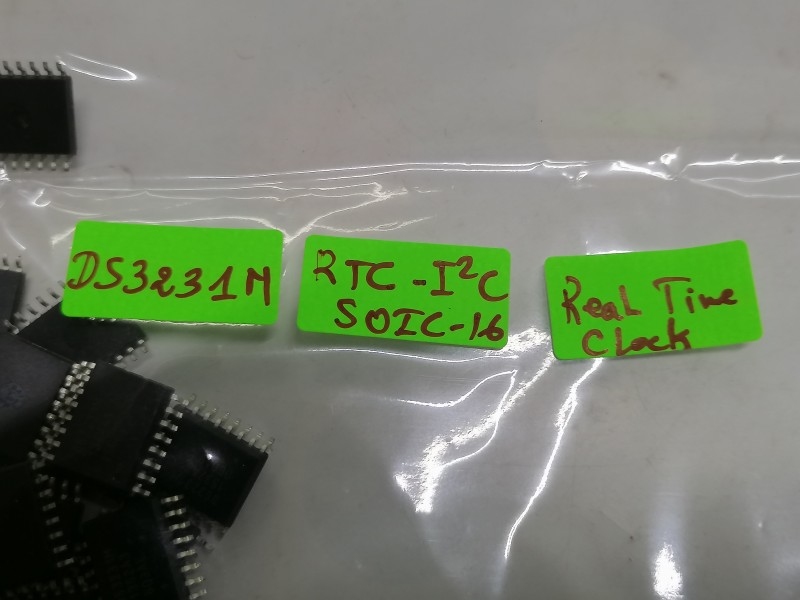 DS3231M
RTC-I²C
SOIC-16
Real Time
Clock